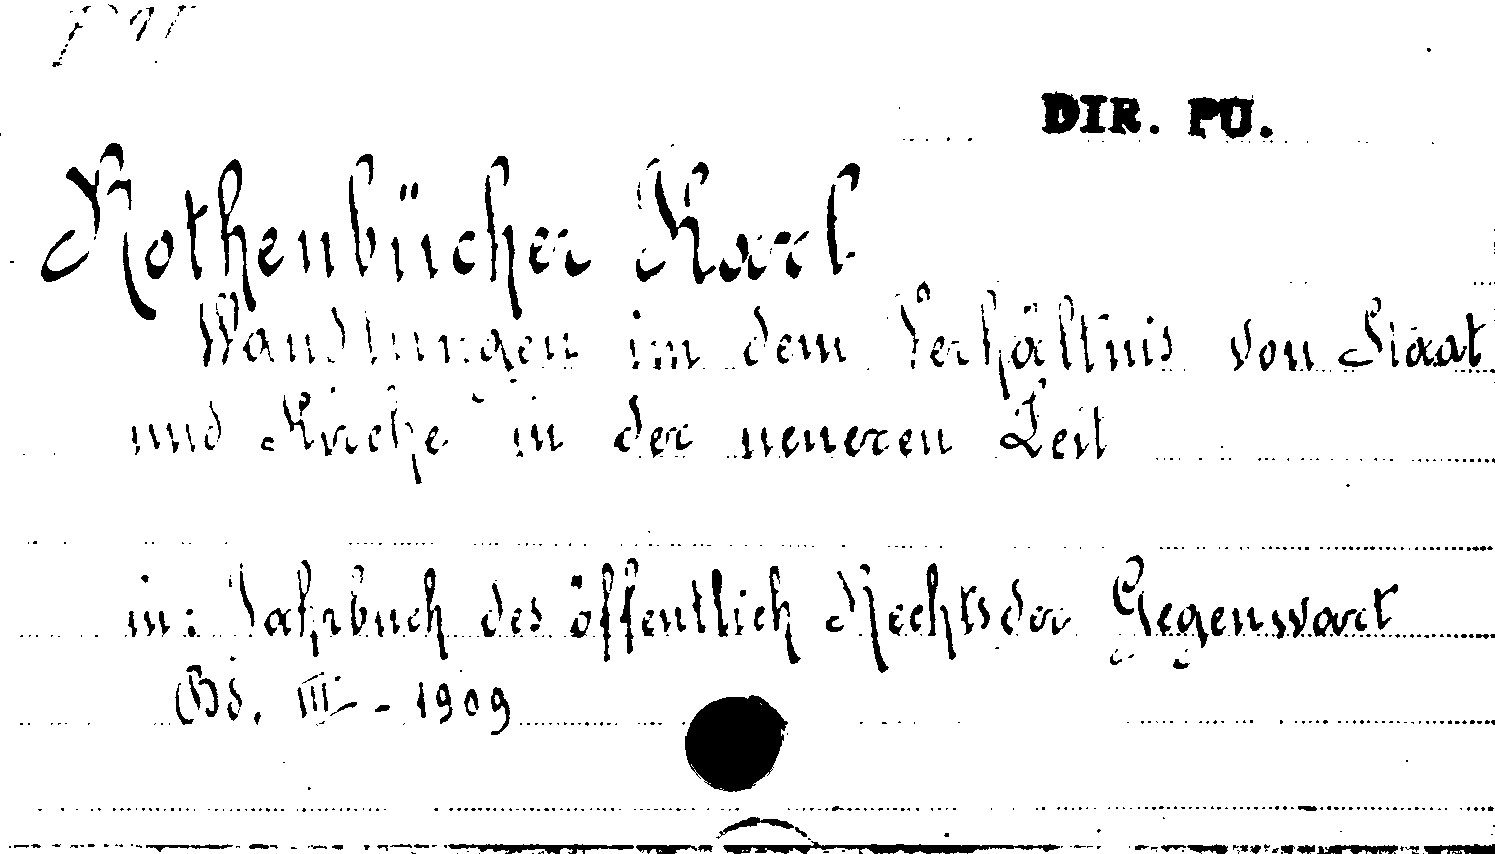 DIR. PU.
Rothenbücher Karl
Wandlungen im dem Verhältnis von Staat
und Kirche in der neueren Zeit
in: Jahrbuch des öffentlich Rechts der Gegenwart
Bd. III - 1909